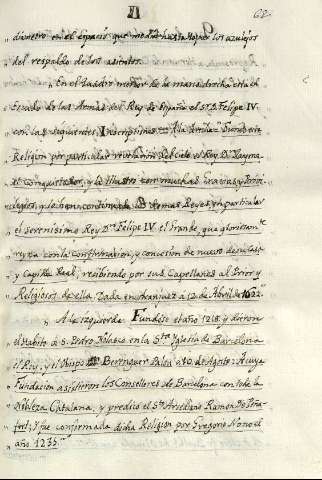 62
diametro en el espacio que media hasta topar los azulejos
del respaldo de los asientos.
En el Quadro menor de la mano drecha está el
Escudo de las Armas del Rey de España el Sr. Dn. Felipe IV.
con las siguientes Inscripciones. A la
Religion por particular revelacion del cielo el Rey Dn. Jayme
el Conquistador, y la Illustró con muchas Gracias, y Privi-
legios, que han continuado Reyes, en particular
el serenissimo Rey Dn. Felipe IV. el Grande, que
reyna con la confirmacion, y concecion de nuevo
y Capilla Real, recibiendo por sus Capellanes al Prior y
Religiosos de ella. Dada en Aranjuez á 12 de Abril de
A la izquierda. Fundóse el año 1218. y dieron
el Habito á S. Pedro Nolasco en la Sta. Iglesia de Barcelona
el Rey, y el Obispo Berenguer Palou á 10. de Agosto: A cuya
Fundacion assistieron los Conselleres de Barcelona con toda la
Nobleza Catalana, y predicó el Sto. Ramon de Peña-
fort; y fue confirmada dicha Religion por Gregorio Nono el
año 1235.